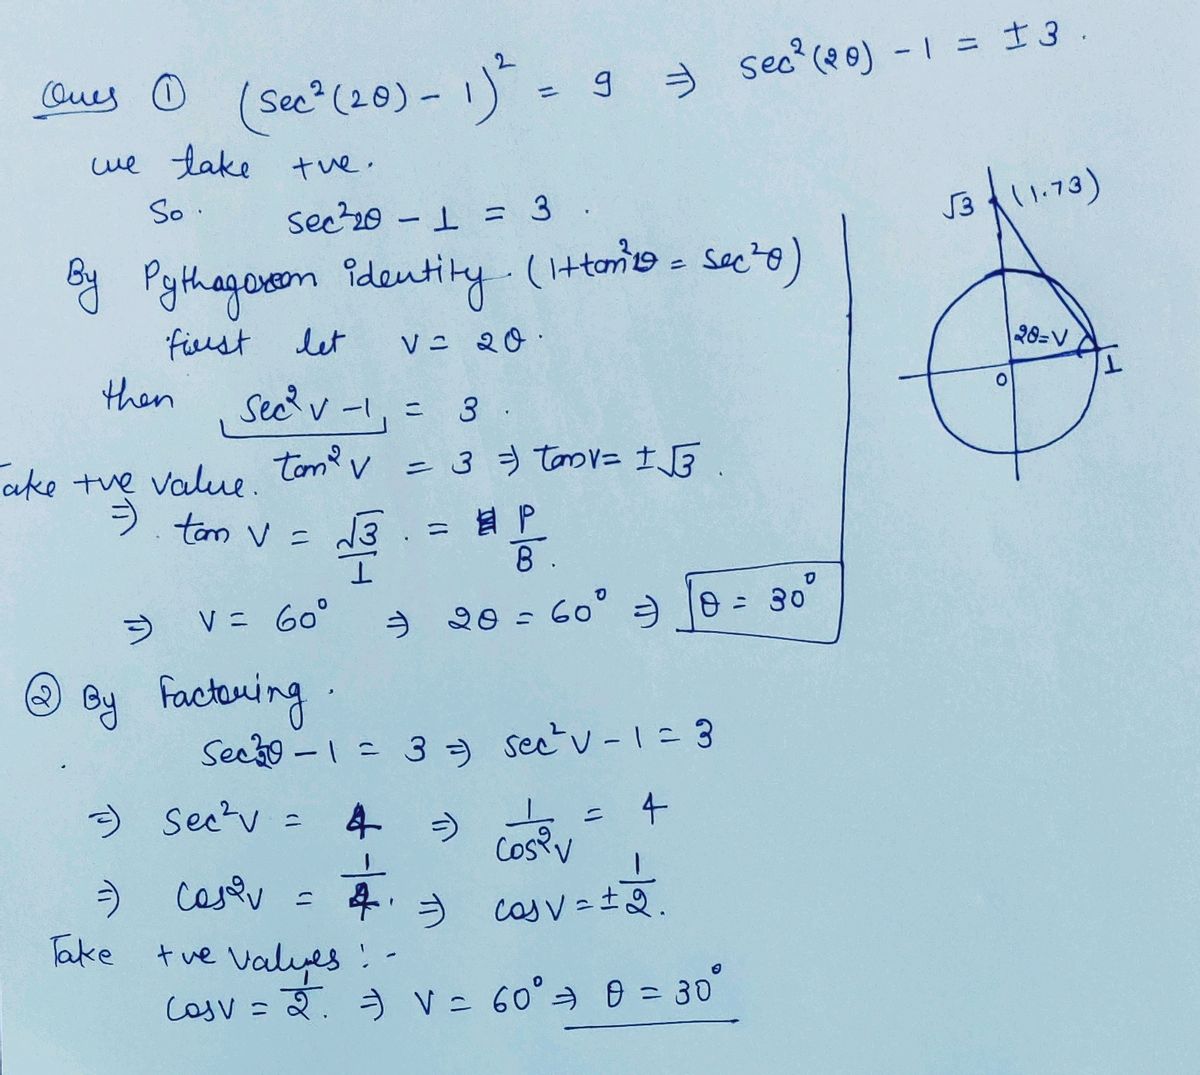 Ques ① (sec²(2θ) - 1)² = 9 ⇒ sec²(2θ) - 1 = ± 3 .
we take +ve.
So. sec²2θ - 1 = 3 .
By Pythagorean identity. (1+tan²θ = sec²θ)
first let v = 2θ.
then sec²v - 1 = 3 .
tan²v = 3 ⇒ tanv = ± √3 .
Take +ve value.
⇒ tan v = √3/1 . = P/B .
⇒ v = 60° ⇒ 2θ = 60° ⇒ θ = 30°
√3 (1.73)
2θ=v
0
1
② By Factoring .
sec²2θ - 1 = 3 ⇒ sec²v - 1 = 3
⇒ sec²v = 4 ⇒ 1/cos²v = 4
⇒ cos²v = 1/4 . ⇒ cosv = ± 1/2 .
Take +ve values :-
cosv = 1/2 . ⇒ v = 60° ⇒ θ = 30°